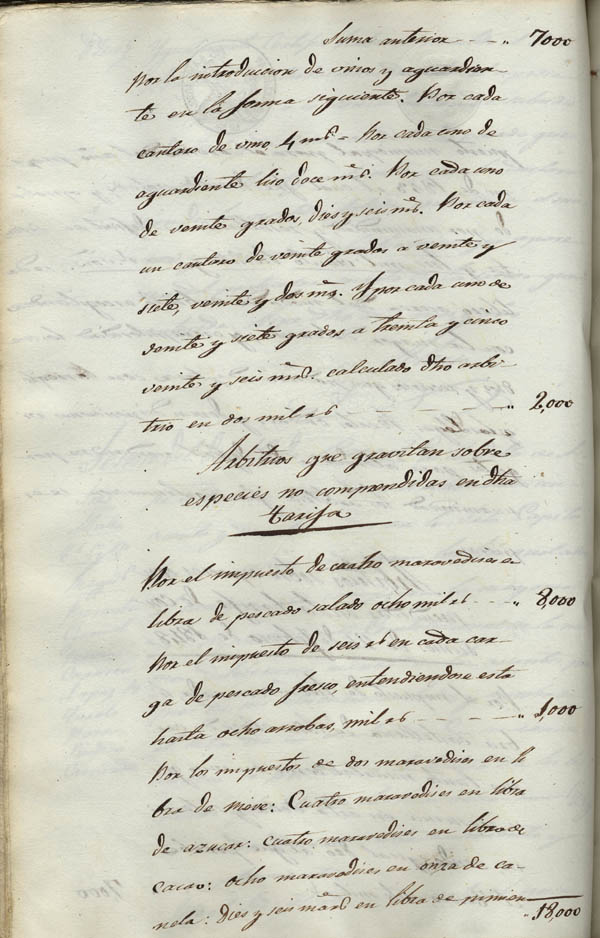 Suma anterior - - - " 7000
Por la introducion de vinos y aguardien-
te en la forma siguiente. Por cada
cantaro de vino 4 mrs = Por cada uno de
aguardiente liso doce mrs. Por cada uno
de veinte grados, dies y seis mrs. Por cada
un cantaro de veinte grados a veinte y
siete, veinte y dos mrs. Y por cada uno de
veinte y siete grados a treinta y cinco
veinte y seis mrs. calculado dho arbi-
trio en dos mil rs - - - - " 2,000
Arbitrios que gravitan sobre
especies no comprendidas en dha
tarifa
Por el impuesto de cuatro maravedises en
libra de pescado salado ocho mil rs - - - " 8,000
Por el impuesto de seis rs en cada car-
ga de pescado fresco, entendiendose esta
hasta ocho arrobas, mil rs - - - - " 1,000
Por los impuestos de dos maravedises en li
bra de nieve: Cuatro maravedises en libra
de azucar: cuatro maravedises en libra de
cacao: ocho maravedises en onza de ca-
nela: Dies y seis mrs en libra de pimien-
" 18,000